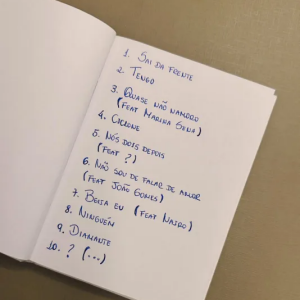 1. SAI DA FRENTE
2. TENGO
3. QUASE NÃO NAMORO
(FEAT MARINA SENA)
4. CICLONE
5. NÓS DOIS DEPOIS
(FEAT ?)
6. NÃO SOU DE FALAR DE AMOR
(FEAT JOÃO GOMES)
7. BEIJA EU (FEAT NAIRO)
8. NINGUÉM
9. DIAMANTE
10. ? (...)